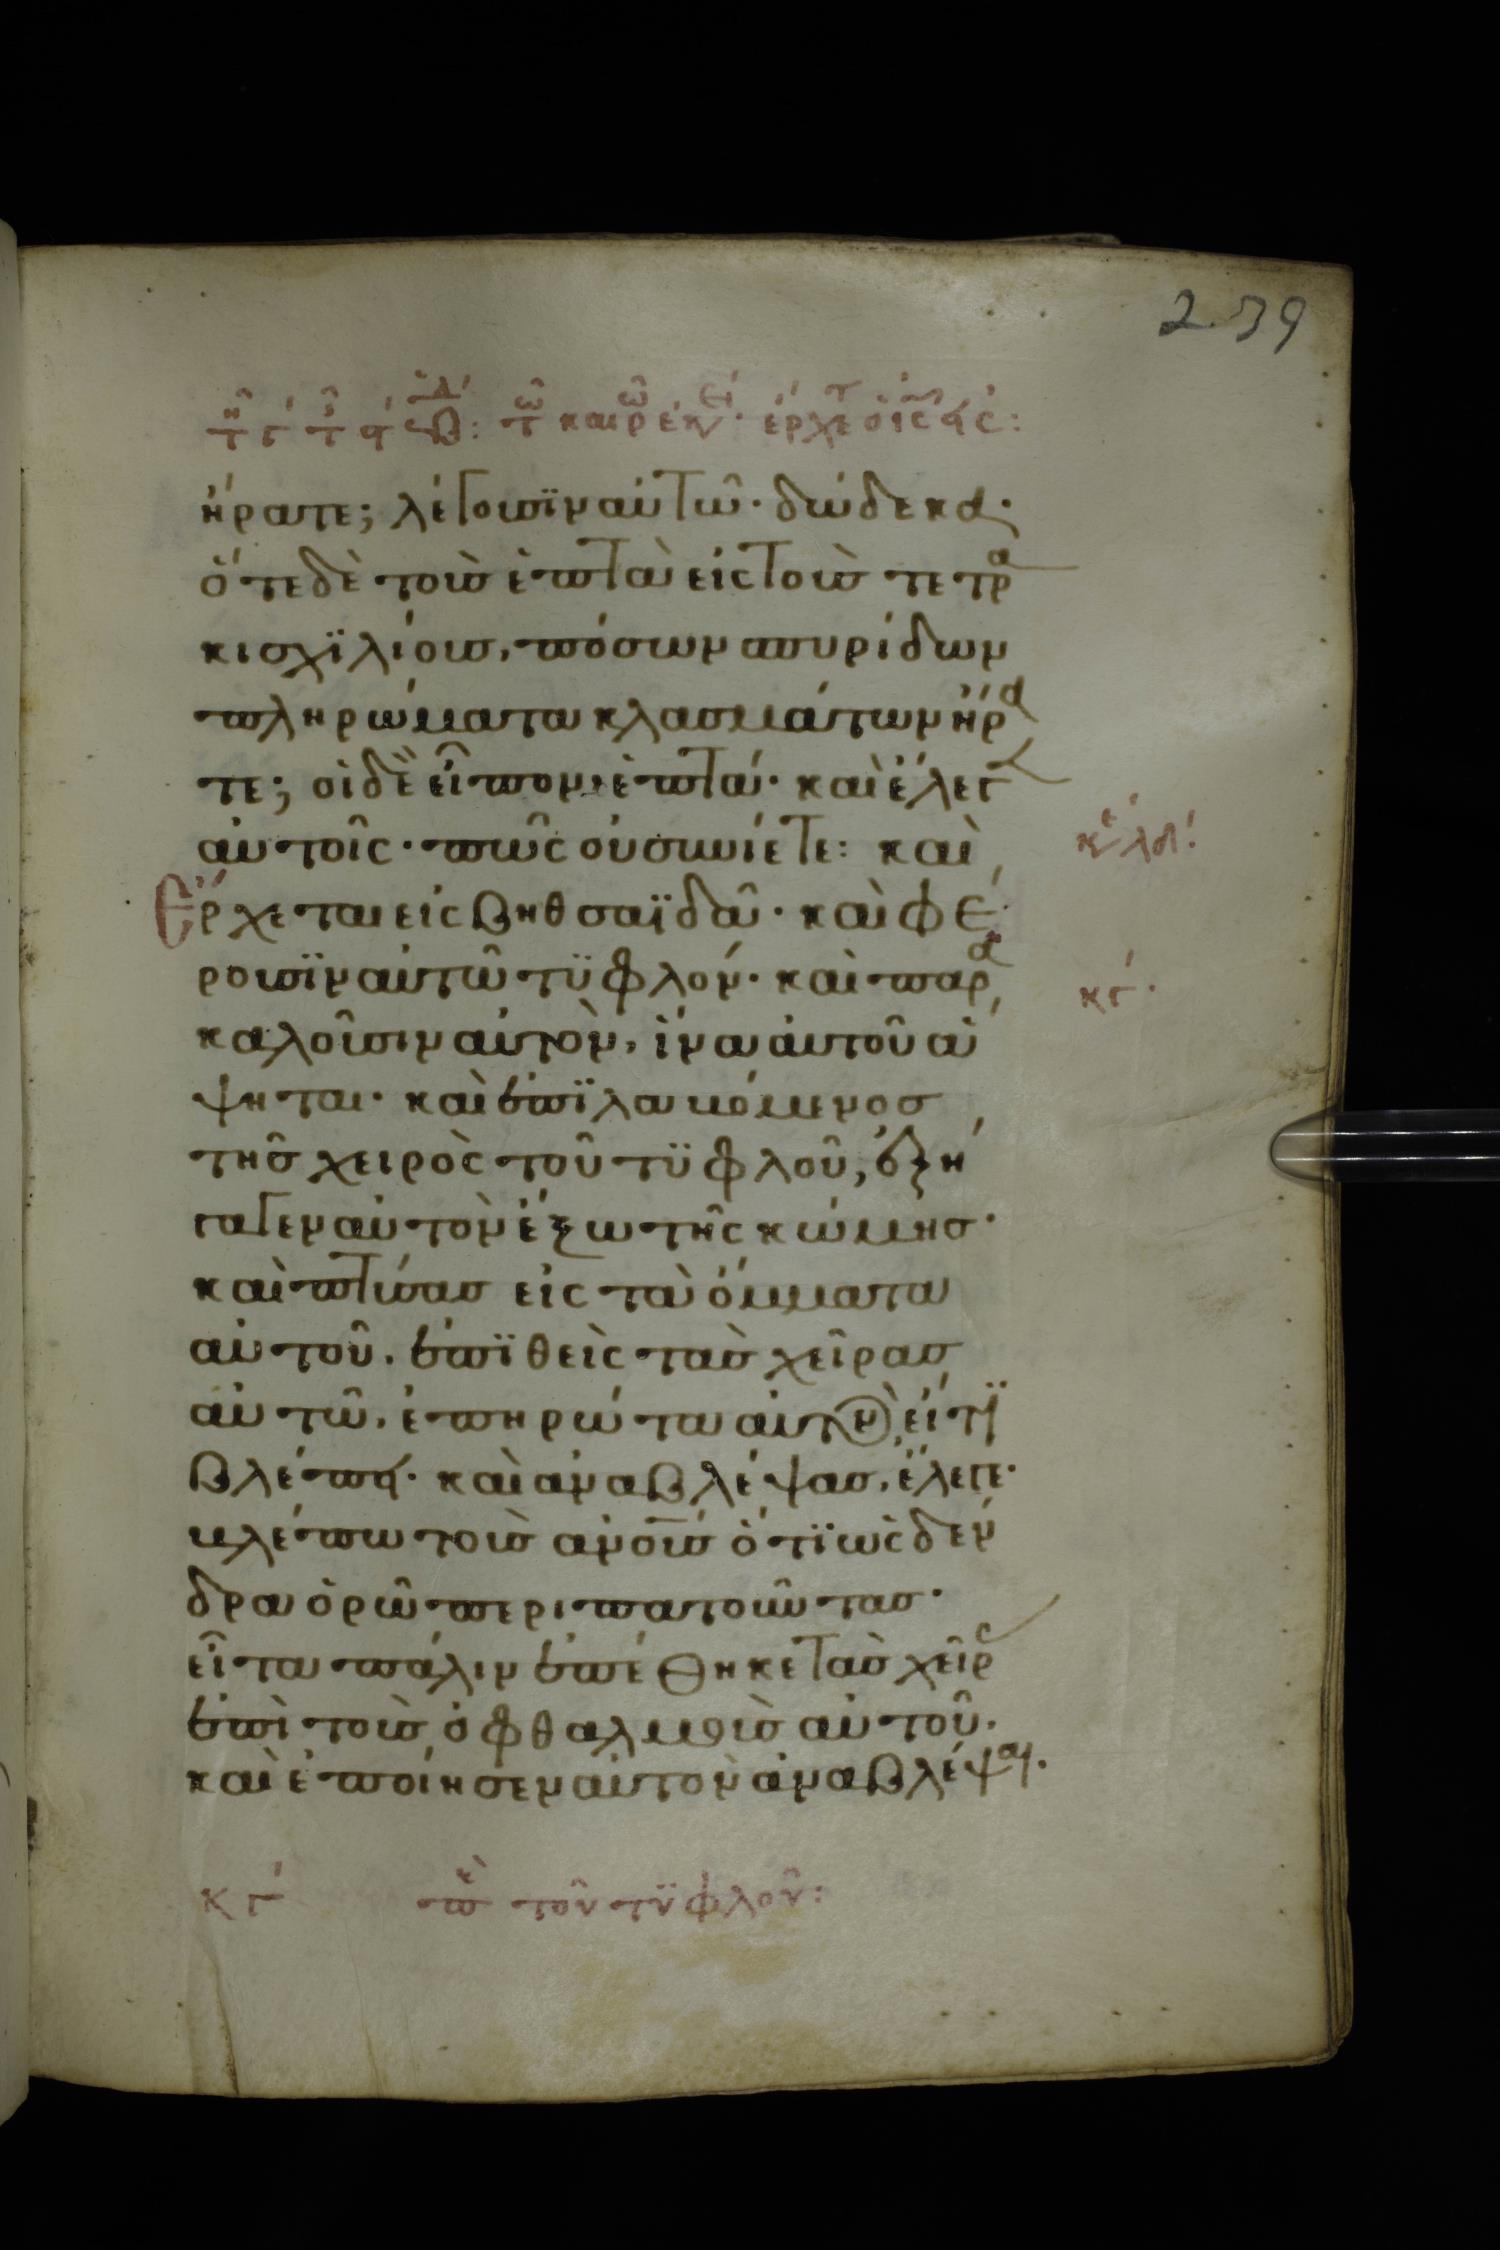 239
ἤρατε; λέγουσϊν αὐτῶ· δώδεκα·
ὅτε δὲ τοὺς ἑπτὰ εἰς τοὺς τετρα
κισχϊλίους, πόσων σπυρίδων
πληρώματα κλασμάτων ἤρα
τε; οἱ δὲ εἶπον, ἑπτά· καὶ ἔλεγ
αὐτοῖς· πῶς οὐ συνίετε: καὶ
Ἔρχεται εἰς βηθσαϊδὰ· καὶ φέ
ρουσϊν αὐτῶ τϋφλόν· καὶ παρα
κγ·
καλοῦσιν αὐτὸν, ἵνα αὐτοῦ ἅ
ψηται· καὶ ἐπϊλαβόμενος
τῆς χειρὸς τοῦ τϋφλοῦ, ἐξή
γαγεν αὐτὸν ἔξω τῆς κώμης·
καὶ πτύσας εἰς τὰ ὄμματα
αὐτοῦ, ἐπϊθεὶς τὰς χεῖρας
αὐτῶ, ἐπηρώτα αὐτὸν, εἴ τϊ
βλέπει· καὶ ἀναβλέψας, ἔλεγε·
βλέπω τοὺς ἀνους ὅτϊ ὡς δέν
δρα ὁρῶ περιπατοῦντας·
εἶτα πάλιν ἐπέθηκε τὰς χεῖρας
ἐπὶ τοὺς ὀφθαλμοὺς αὐτοῦ·
καὶ ἐποίησεν αὐτὸν ἀναβλέψαι·
κγ περὶ τοῦ τϋφλοῦ: